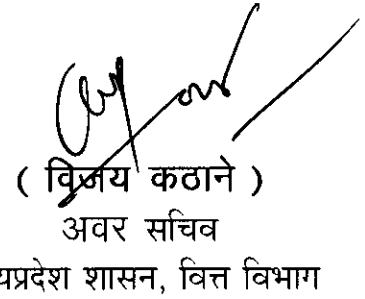 ( विजय कठाने )
अवर सचिव
यप्रदेश शासन, वित्त विभाग